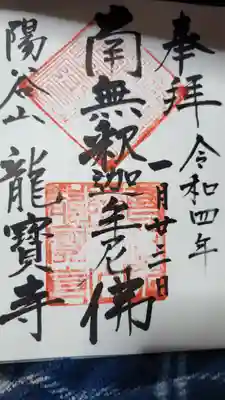 奉拝
令和四年
一月廿三日
南無釈迦牟尼佛
陽谷山 龍寶寺